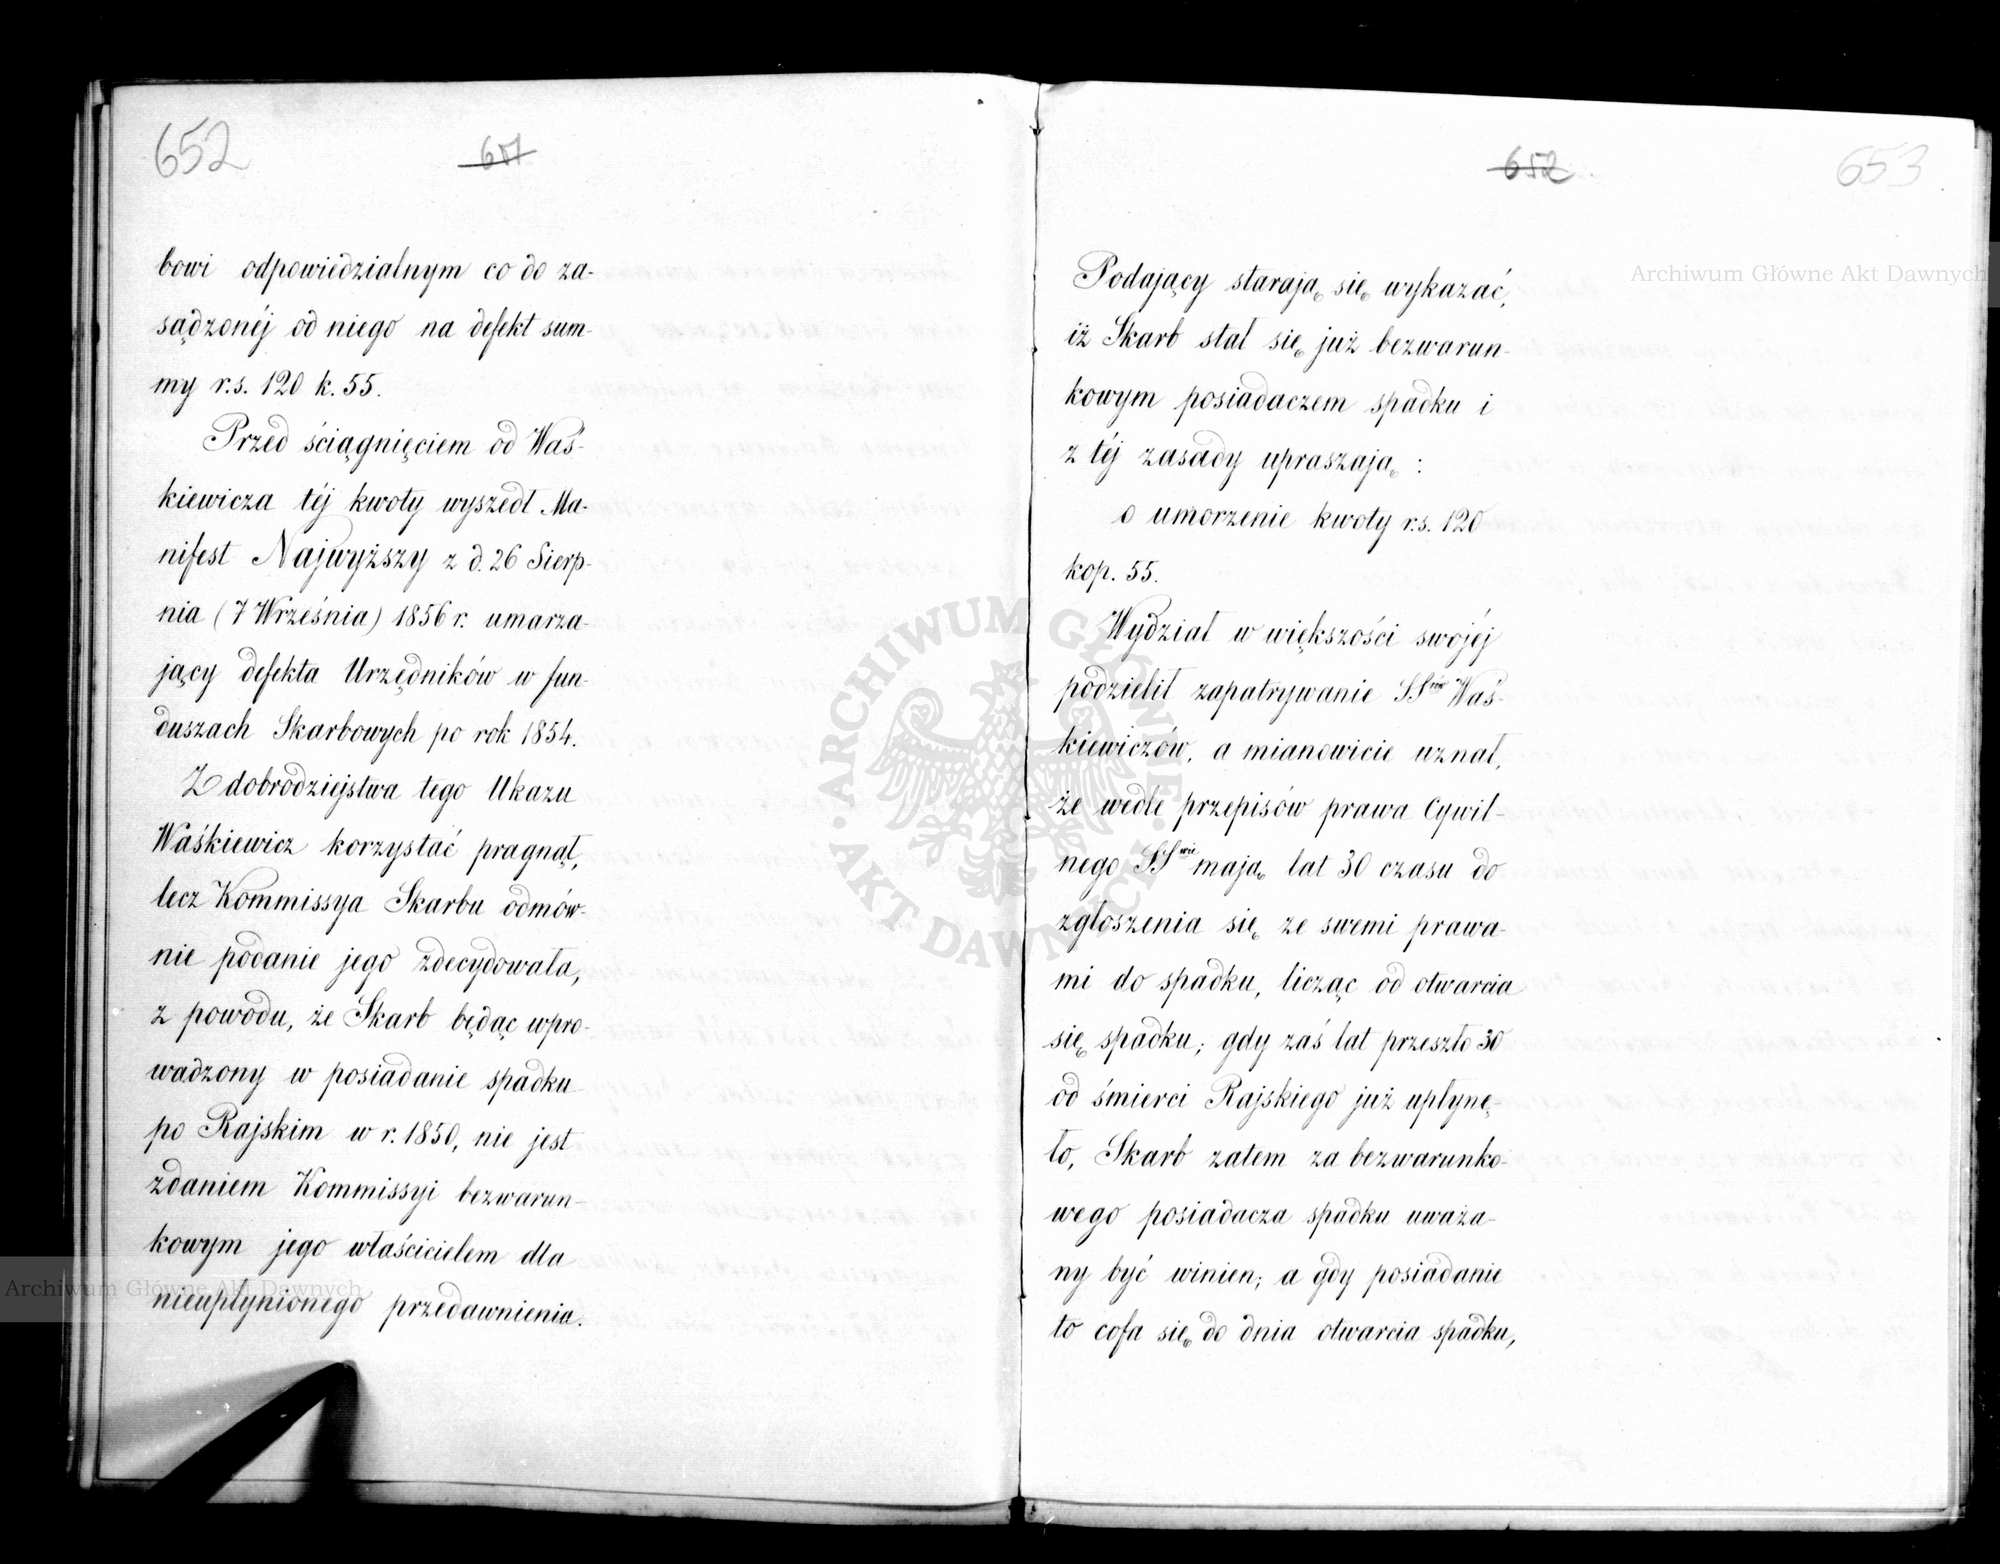 652
651
bowi odpowiedzialnym co do za-
sądzonéj od niego na defekt sum-
my r.s. 120 k. 55.
Przed ściągnięciem od Waś-
kiewicza téj kwoty wyszedł Ma-
nifest Najwyższy z d. 26 Sierp-
nia (7 Września) 1856 r. umarza-
jący defekta Urzędników w fun-
duszach Skarbowych po rok 1854.
Z dobrodziejstwa tego Ukazu
Waśkiewicz korzystać pragnął,
lecz Kommissya Skarbu odmów-
nie podanie jego zdecydowała,
z powodu, że Skarb będąc wpro-
wadzony w posiadanie spadku
po Rajskim w r. 1850, nie jest
zdaniem Kommissyi bezwarun-
kowym jego właścicielem dla
nieupłynionego przedawnienia.
652
653
Podający starają się wykazać,
iż Skarb stał się już bezwarun-
kowym posiadaczem spadku i
z téj zasady upraszają:
o umorzenie kwoty r.s. 120
kop. 55.
Wydział w większości swojéj
podzielił zapatrywanie SSrów Waś-
kiewiczów, a mianowicie uznał,
że wedle przepisów prawa Cywil-
nego SSwie mają lat 30 czasu do
zgłoszenia się ze swemi prawa-
mi do spadku, licząc od otwarcia
się spadku; gdy zaś lat przeszło 30
od śmierci Rajskiego już upłynę-
ło, Skarb zatem za bezwarunko-
wego posiadacza spadku uważa-
ny być winien; a gdy posiadanie
to cofa się do dnia otwarcia spadku,
Archiwum Główne Akt Dawnych
Archiwum Główne Akt Dawnych
ARCHIWUM GŁÓWNE
AKT DAWNYCH